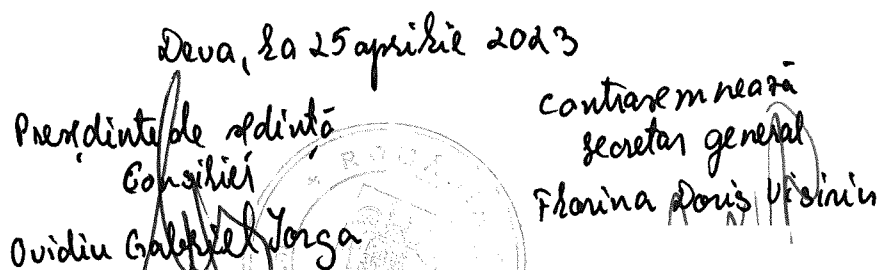 Deva, la 25 aprilie 2023
Președinte de ședință
Consilier
Ovidiu Gabriel Iorga
Contrasemnează
secretar general
Florina Doris Visirin
* ROMÂ